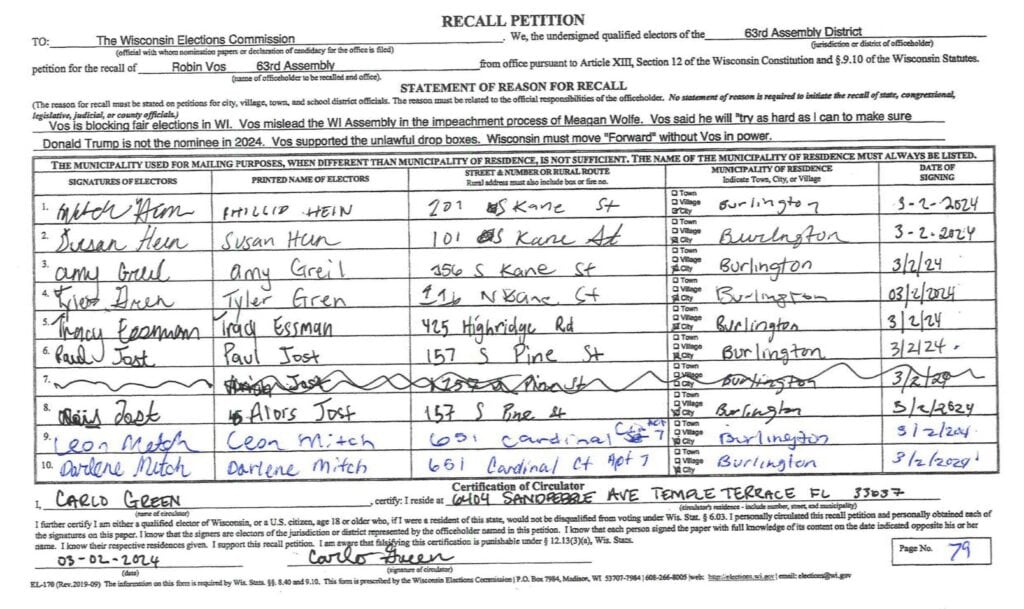 RECALL PETITION
TO: The Wisconsin Elections Commission . We, the undersigned qualified electors of the 63rd Assembly District
(official with whom nomination papers or declaration of candidacy for the office is filed) (jurisdiction or district of officeholder)
petition for the recall of Robin Vos 63rd Assembly from office pursuant to Article XIII, Section 12 of the Wisconsin Constitution and §.9.10 of the Wisconsin Statutes.
(name of officeholder to be recalled and office).
STATEMENT OF REASON FOR RECALL
(The reason for recall must be stated on petitions for city, village, town, and school district officials. The reason must be related to the official responsibilities of the officeholder. No statement of reason is required to initiate the recall of state, congressional,
legislative, judicial, or county officials.)
Vos is blocking fair elections in WI. Vos mislead the WI Assembly in the impeachment process of Meagan Wolfe. Vos said he will "try as hard as I can to make sure
Donald Trump is not the nominee in 2024. Vos supported the unlawful drop boxes. Wisconsin must move "Forward" without Vos in power.
THE MUNICIPALITY USED FOR MAILING PURPOSES, WHEN DIFFERENT THAN MUNICIPALITY OF RESIDENCE, IS NOT SUFFICIENT. THE NAME OF THE MUNICIPALITY OF RESIDENCE MUST ALWAYS BE LISTED.
SIGNATURES OF ELECTORS PRINTED NAME OF ELECTORS STREET & NUMBER OR RURAL ROUTE MUNICIPALITY OF RESIDENCE DATE OF
Rural address must also include box or fire no. Indicate Town, City, or Village SIGNING
1. PHILLIP HEIN 201 S Kane St Town Village City Burlington 3-2-2024
2. Susan Hein Susan Hein 101 S Kane St Town Village City Burlington 3-2-2024
3. Amy Greil Amy Greil 356 S Kane St Town Village City Burlington 3/2/24
4. Tyler Gren Tyler Gren N Kane St Town Village City Burlington 03/2/2024
5. Tracy Essmann Tracy Essman 425 Highridge Rd Town Village City Burlington 3/2/24
6. Paul Jost Paul Jost 157 S Pine St Town Village City Burlington 3/2/24
7. Jost Pine St Town Village City Burlington 3/2/24
8. Jost Alois Jost 157 S Pine St Town Village City Burlington 3/2/2024
9. Leon Metch Leon Mitch 651 Cardinal Ct Apt 7 Town Village City Burlington 3/2/2024
10. Darlene Mitch Darlene Mitch 651 Cardinal Ct Apt 7 Town Village City Burlington 3/2/2024
Certification of Circulator
I, CARLO GREEN , certify: I reside at 6404 SANDPEBBLE AVE TEMPLE TERRACE FL 33637
(name of circulator) (circulator's residence - include number, street, and municipality)
I further certify I am either a qualified elector of Wisconsin, or a U.S. citizen, age 18 or older who, if I were a resident of this state, would not be disqualified from voting under Wis. Stat. § 6.03. I personally circulated this recall petition and personally obtained each of
the signatures on this paper. I know that the signers are electors of the jurisdiction or district represented by the officeholder named in this petition. I know that each person signed the paper with full knowledge of its content on the date indicated opposite his or her
name. I know their respective residences given. I support this recall petition. I am aware that falsifying this certification is punishable under § 12.13(3)(a), Wis. Stats.
03-02-2024 Carlo Green Page No. 79
(date) (signature of circulator)
EL-170 (Rev.2019-09) The information on this form is required by Wis. Stats. §§. 8.40 and 9.10. This form is prescribed by the Wisconsin Elections Commission | P.O. Box 7984, Madison, WI 53707-7984 | 608-266-8005 | web: http://elections.wi.gov | email: elections@wi.gov